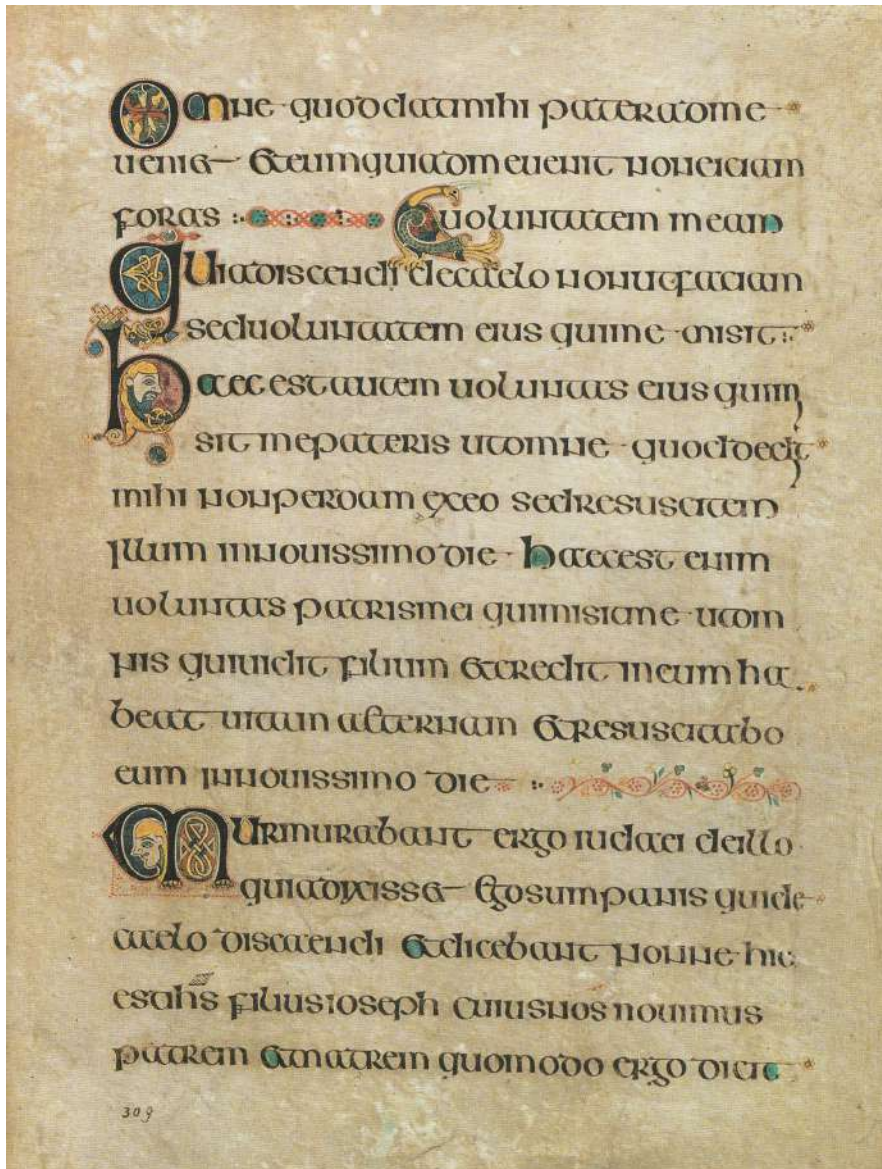 Omne quod dat mihi pater ad me
ueniet Et eum qui ad me uenit non eiciam
foras uoluntatem meam
Quia discendi de caelo non ut faciam
sed uoluntatem eius qui me misit
Haec est autem uoluntas eius qui mi
sit me pateris ut omne quod dedit
mihi non perdam ex eo sed resuscitem
illum in nouissimo die Haec est enim
uoluntas patris mei qui misit me ut om
nis qui uidit filium et credit in eum ha
beat uitam aeternam et resuscitabo
eum in nouissimo die
Murmurabant ergo iudaei de illo
quia dixisset Ego sum panis qui de
caelo discendi et dicebant nonne hic
est ihs filius ioseph cuius nos nouimus
patrem et matrem quomodo ergo dicit
309